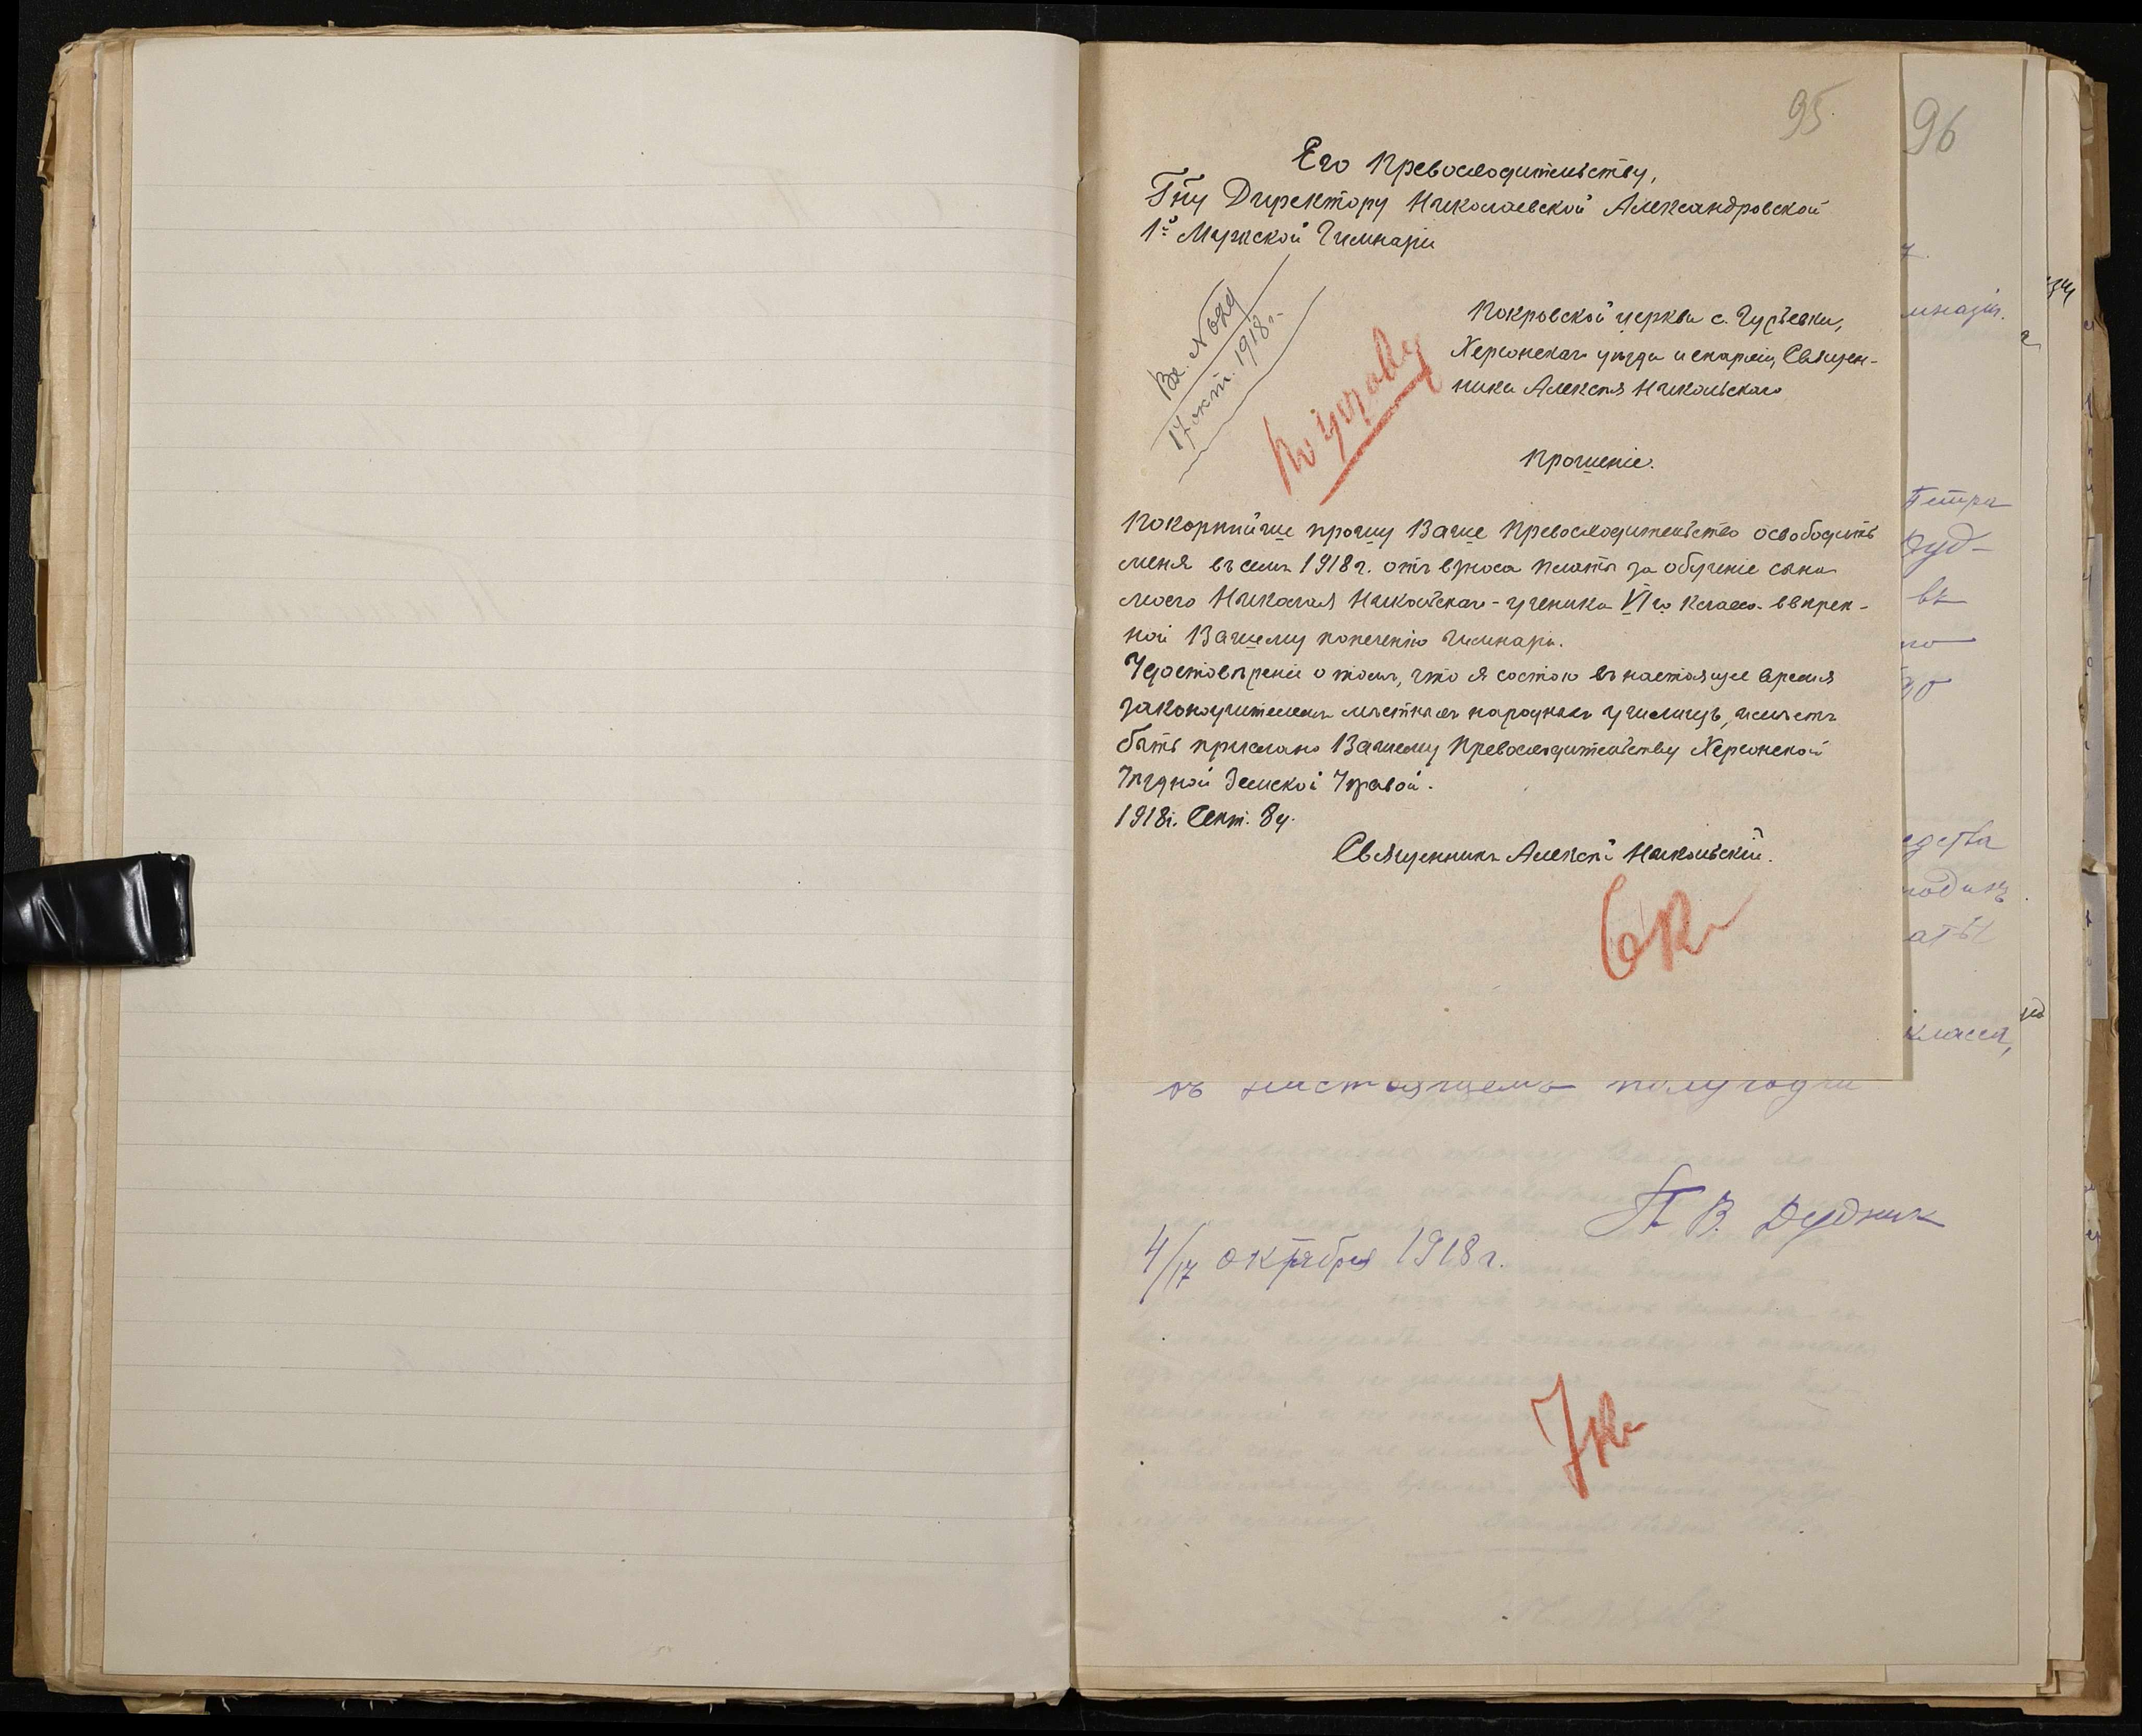 95.
96
Его Превосходительству,
Гну Директору Николаевской Александровской
1й Мужской Гимназіи
Вх. № 629
17 окт. 1918 г.
Покровской церкви с. Гурьевки,
Херсонскаго уѣзда и епархіи, Священ-
ника Алексѣя Никольскаго
Прошеніе.
Покорнѣйше прошу Ваше Превосходительство освободить
меня въ семъ 1918 г. отъ взноса платы за обученіе сына
моего Николая Никольскаго - ученика VIго класса ввѣрен-
ной Вашему попеченію гимназіи.
Удостовѣреніе о томъ, что я состою въ настоящее время
законоучителемъ мѣстныхъ народныхъ училищъ, имѣетъ
быть прислано Вашему Превосходительству Херсонской
Уѣздной Земской Управой.
1918 г. Сент. 8 ч.
Священникъ Алексѣй Никольскій.
6 к
мназіи.
Петра
Дуд-
въ
но
класса,
въ настоящемъ полугодіи
П В. Дудник
4/17 октября 1918 г.
7 к